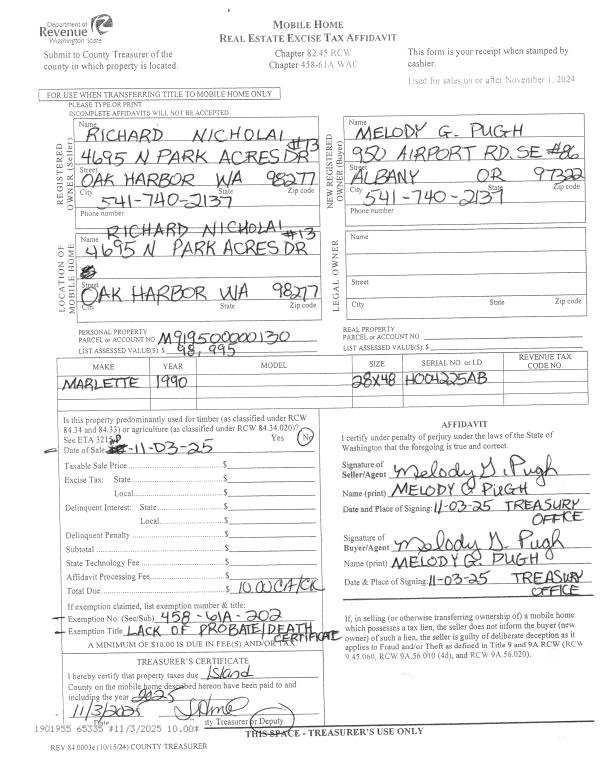 Department of
Revenue
Washington State
Submit to County Treasurer of the
county in which property is located.
MOBILE HOME
REAL ESTATE EXCISE TAX AFFIDAVIT
Chapter 82.45 RCW
Chapter 458-61A WAC
This form is your receipt when stamped by
cashier.
Used for sales on or after November 1, 2024
FOR USE WHEN TRANSFERRING TITLE TO MOBILE HOME ONLY
PLEASE TYPE OR PRINT
INCOMPLETE AFFIDAVITS WILL NOT BE ACCEPTED
REGISTERED OWNER (Seller)
Name RICHARD NICHOLAI
4695 N PARK ACRES DR #13
Street
OAK HARBOR WA 98277
City State Zip code
541-740-2137
Phone number
NEW REGISTERED OWNER (Buyer)
Name MELODY G. PUGH
950 AIRPORT RD. SE #86
Street
ALBANY OR 97322
City State Zip code
541-740-2137
Phone number
LOCATION OF MOBILE HOME
RICHARD NICHOLAI
Name 4695 N PARK ACRES DR #13
Street
OAK HARBOR WA 98277
City State Zip code
LEGAL OWNER
Name
Street
City State Zip code
PERSONAL PROPERTY
PARCEL or ACCOUNT NO. M919500000130
LIST ASSESSED VALUE(S): $ 98,995
REAL PROPERTY
PARCEL or ACCOUNT NO.
LIST ASSESSED VALUE(S): $
MAKE YEAR MODEL SIZE SERIAL NO. or I.D REVENUE TAX CODE NO.
MARLETTE 1990 28X48 H004225AB
Is this property predominantly used for timber (as classified under RCW
84.34 and 84.33) or agriculture (as classified under RCW 84.34.020)?
See ETA 3215 Yes No
Date of Sale 11-03-25
Taxable Sale Price $
Excise Tax: State $
Local $
Delinquent Interest: State $
Local $
Delinquent Penalty $
Subtotal $
State Technology Fee $
Affidavit Processing Fee $
Total Due $ 10.00 CA/CK
If exemption claimed, list exemption number & title:
Exemption No. (Sec/Sub) 458-61A-202
Exemption Title LACK OF PROBATE/DEATH CERTIFICATE
A MINIMUM OF $10.00 IS DUE IN FEE(S) AND/OR TAX.
AFFIDAVIT
I certify under penalty of perjury under the laws of the State of
Washington that the foregoing is true and correct.
Signature of
Seller/Agent Melody G. Pugh
Name (print) MELODY G PUGH
Date and Place of Signing: 11-03-25 TREASURY OFFICE
Signature of
Buyer/Agent Melody G. Pugh
Name (print) MELODY G. PUGH
Date & Place of Signing: 11-03-25 TREASURY OFFICE
If, in selling (or otherwise transferring ownership of) a mobile home
which possesses a tax lien, the seller does not inform the buyer (new
owner) of such a lien, the seller is guilty of deliberate deception as it
applies to Fraud and/or Theft as defined in Title 9 and 9A RCW (RCW
9.45.060, RCW 9A.56.010 (4d), and RCW 9A.56.020).
TREASURER'S CERTIFICATE
I hereby certify that property taxes due Island
County on the mobile home described hereon have been paid to and
including the year 2025
11/3/2025
Date ty Treasurer or Deputy
1901955 65335 #11/3/2025 10.00*
THIS SPACE - TREASURER'S USE ONLY
REV 84 0003e (10/15/24) COUNTY TREASURER